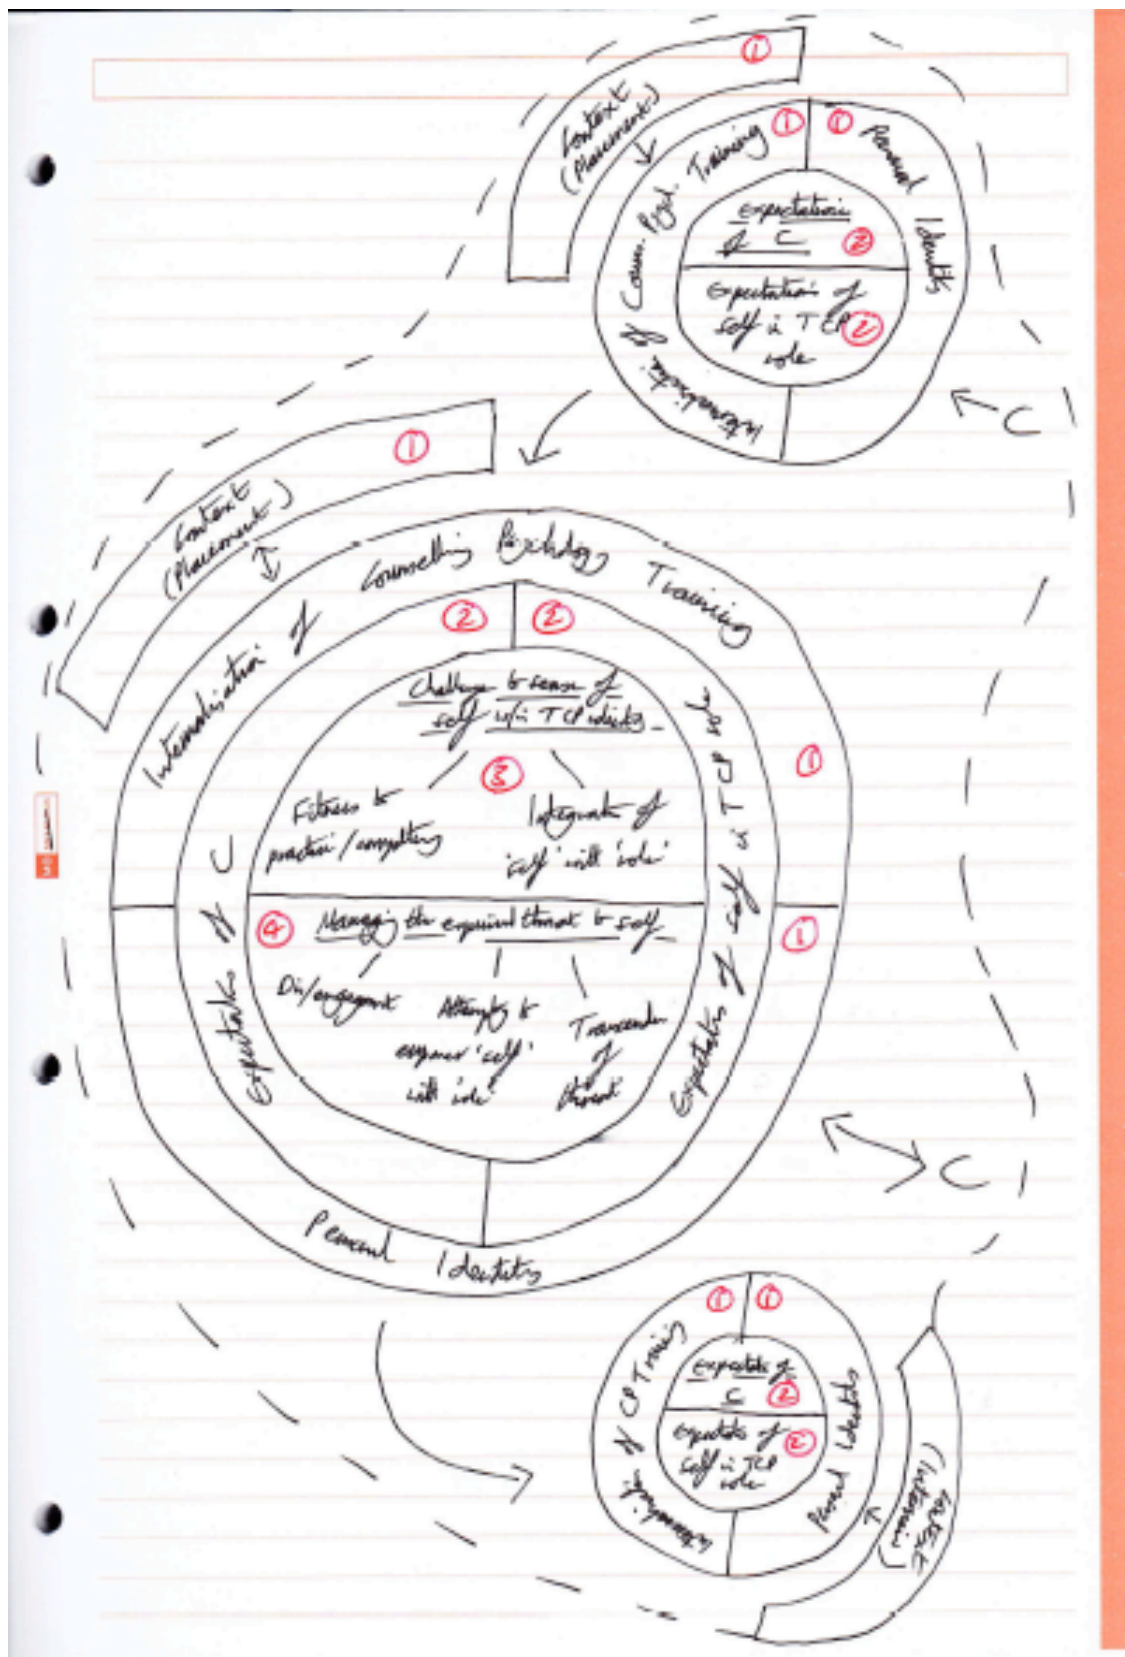 ①
Context
(Placement)
Internalisation of Coun. Psych. Training ①
① Personal Identity
Expectations
of C ②
Expectations of
self in TCP ②
role
C
①
Context
(Placement)
Internalisation of Counselling Psychology Training
②
②
Challenge to sense of
self w/in TCP identity
③
①
Fitness to
practice / competency
Integrate of
'self' with 'role'
Expectats of C
Expectats of self in TCP role
④ Managing the experienced threat to self
①
Dis/engagement
Attempts to
'self'
with 'role'
of
threat
C
Personal Identity
① ①
Internalisation of CP Training
Personal Identity
Expectats of
C ②
Expectats of ②
self in TCP
role
Context
(Interview)